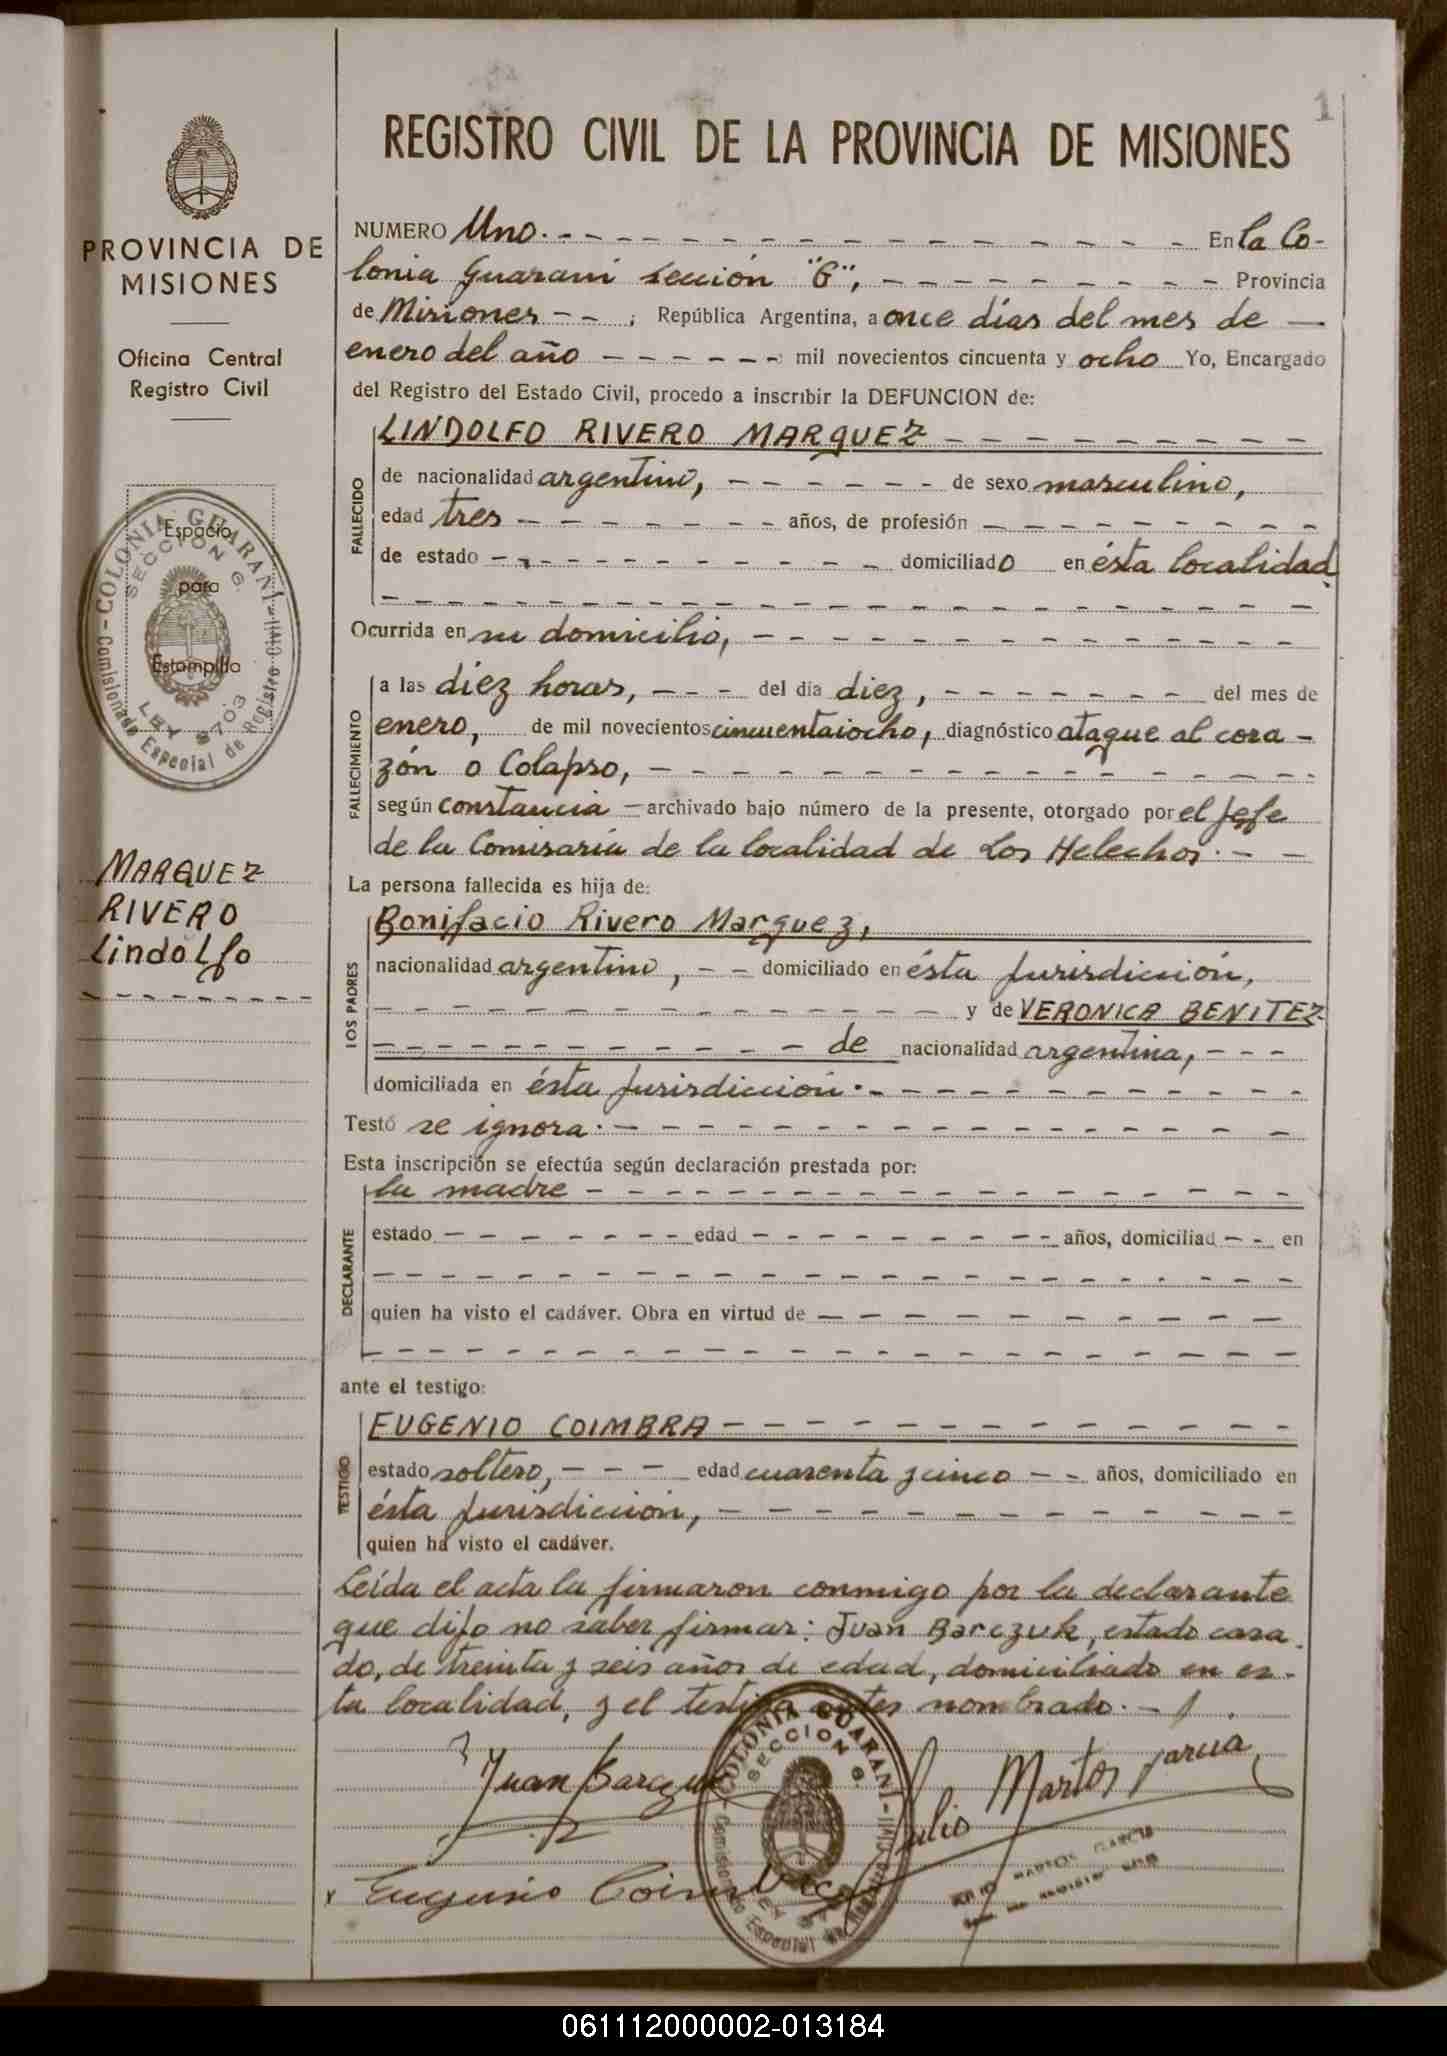 1
REGISTRO CIVIL DE LA PROVINCIA DE MISIONES
PROVINCIA DE
MISIONES
Oficina Central
Registro Civil
Espacio
para
Estampilla
COLONIA GUARANI
SECCION G.
LEY 8703
Comisionado Especial de Registro Civil
MARQUEZ
RIVERO
Lindolfo
NUMERO Uno. En la Co-
lonia Guaraní sección "G", Provincia
de Misiones ; República Argentina, a once días del mes de
enero del año mil novecientos cincuenta y ocho Yo, Encargado
del Registro del Estado Civil, procedo a inscribir la DEFUNCION de:
LINDOLFO RIVERO MARQUEZ
FALLECIDO
de nacionalidad argentino, de sexo masculino,
edad tres años, de profesión
de estado domiciliado en ésta localidad
Ocurrida en su domicilio,
FALLECIMIENTO
a las diez horas, del dia diez, del mes de
enero, de mil novecientos cincuentaiocho, diagnóstico ataque al cora-
zón o Colapso,
según constancia archivado bajo número de la presente, otorgado por el Jefe
de la Comisaría de la localidad de Los Helechos.
La persona fallecida es hija de:
LOS PADRES
Bonifacio Rivero Marquez,
nacionalidad argentino, domiciliado en ésta Jurisdicción,
y de VERONICA BENITEZ
de nacionalidad argentina,
domiciliada en ésta Jurisdicción.
Testó se ignora.
Esta inscripción se efectúa según declaración prestada por:
DECLARANTE
la madre
estado edad años, domiciliad en
quien ha visto el cadáver. Obra en virtud de
ante el testigo:
TESTIGO
EUGENIO COIMBRA
estado soltero, edad cuarenta y cinco años, domiciliado en
ésta Jurisdicción,
quien ha visto el cadáver.
Leída el acta la firmaron conmigo por la declarante
que dijo no saber firmar: Juan Barczuk, estado casa-
do, de treinta y seis años de edad, domiciliado en es-
ta localidad, y el testigo antes nombrado.
Juan Barczuk
Julio Martos Garcia
Eugenio Coimbra
COLONIA GUARANI
SECCION G.
Comisionado Especial de Registro Civil
JULIO MARTOS GARCIA
061112000002-013184